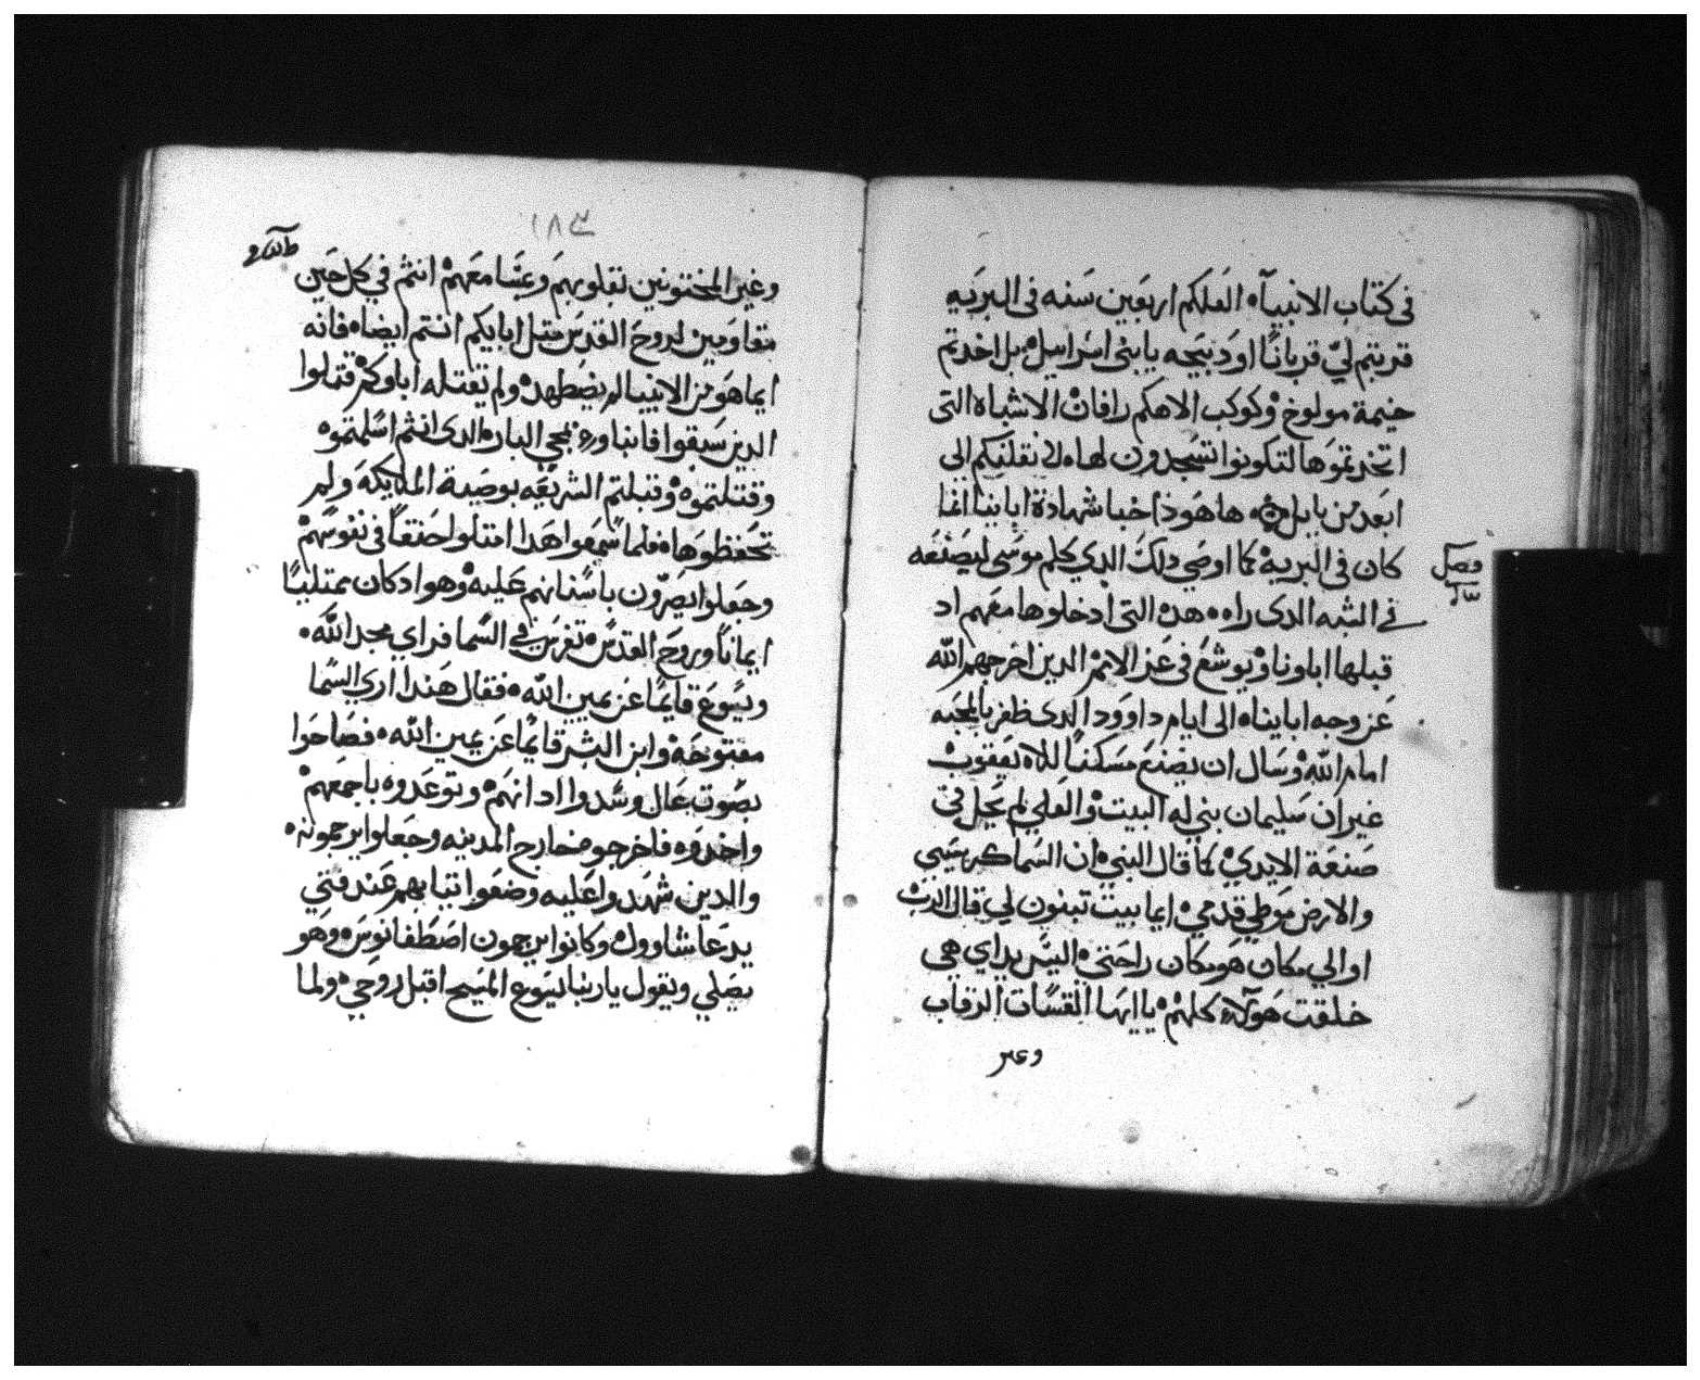 في كتاب الانبيآء العلكم اربعين سنه في البريه
قربتم لي قربانًا او دبيحه يا بني اسراييل بل اخدتم
خيمة مولوخ وكوكب الاهكم رافان الاشباه التي
اتخدتموها لتكونوا تسجدون لها لانقلنكم الي
ابعد من بابل ها هودا خبا شهادة ابائنا انما
كان في البريه كما اوصي دلك الدي كلم موسي ليصنعه
فصل
في الشبه الدي راه هده التي ادخلوها معهم اد
قبلها اباونا ويوشع في عز الامم الدين اخرجهم الله
عن وجه ابايناه الي ايام داوود الدي ظفر بالمحبه
امام الله وسال ان يصنع مسكنًا للاه يعقوب
غير ان سليمان بني له البيت والعلي لم يحل في
صنعة الايدي كما قال النبي ان السما كرسيي
والارض موطي قدمي ايما بيت تبنون لي قال الرب
او الي مكان هو مكان راحتي اليس يداي هي
خلقت هولآء كلهم يا ايها القساة الرقاب
وغير
١٨٣
وغير المختونين بقلوبهم وعسًا معهم انتم في كل حين
مقاومين لروح القدس متل ابايكم انتم ايضاه فانه
ايما هو من الانبيا لم يضطهده ولم تقتله اباوكم قتلوا
الدين سبقوا فانباوا بمجي الباره الدي انتم اسلمتموه
وقتلتموه وقبلتم الشريعه بوصية الملايكه ولم
تحفظوها فلما سمعوا هدا امتلوا حنقًا في نفوسهم
وجعلوا يصرّون باسنانهم عليه وهو اد كان ممتليًا
ايمانًا وروح القدس تفرس في السما فراي مجد الله
ويسوع قايمًا عن يمين الله فقال هندا اري السما
مفتوحه وابن البشر قايمًا عن يمين الله فصاحوا
بصوت عال وسدوا ادانهم وتوعدوه باجمعهم
واخدوه فاخرجوه خارج المدينه وجعلوا يرجمونه
والدين شهدوا عليه وضعوا تيابهم عند فتي
يدعا شاوول وكانوا يرجمون اصطفانوس وهو
يصلي ويقول يا ربنا يسوع المسيح اقبل روحي ولما